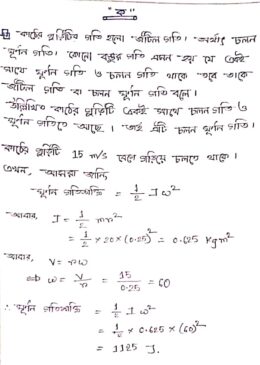 "ক"
কাঠের গুড়িটির গতি হলো জটিল গতি। অর্থাৎ চলন
ঘূর্ণন গতি। কোনো বস্তুর গতি এমন হয় যে একই
সাথে ঘূর্ণন গতি ও চলন গতি থাকে তবে তাকে
জটিল গতি বা চলন ঘূর্ণন গতি বলে।
উল্লিখিত কাঠের গুড়িটি একই সাথে চলন গতি ও
ঘূর্ণন গতিতে আছে। তাই এটি চলন ঘূর্ণন গতি।
কাঠের গুড়িটি 15 m/s বেগে গড়িয়ে চলতে থাকে।
এখন, আমরা জানি
ঘূর্ণন গতিশক্তি = 1/2 I ω²
আবার, I = 1/2 mr²
= 1/2 × 20 × (0.25)² = 0.625 kgm²
আবার, V = rω
⇒ ω = V/r = 15/0.25 = 60
∴ ঘূর্ণন গতিশক্তি = 1/2 I ω²
= 1/2 × 0.625 × (60)²
= 1125 J.